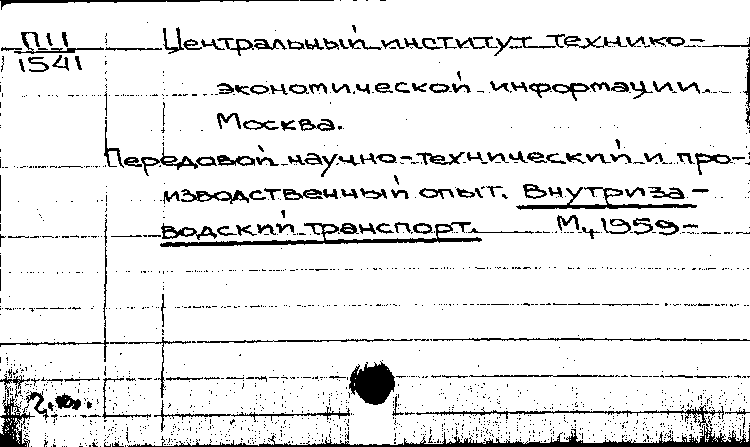 ПII Центральный институт технико-
1541
экономической информации.
Москва.
Передовой научно-технический и про-
изводственный опыт. Внутриза-
водский транспорт. М., 1959-